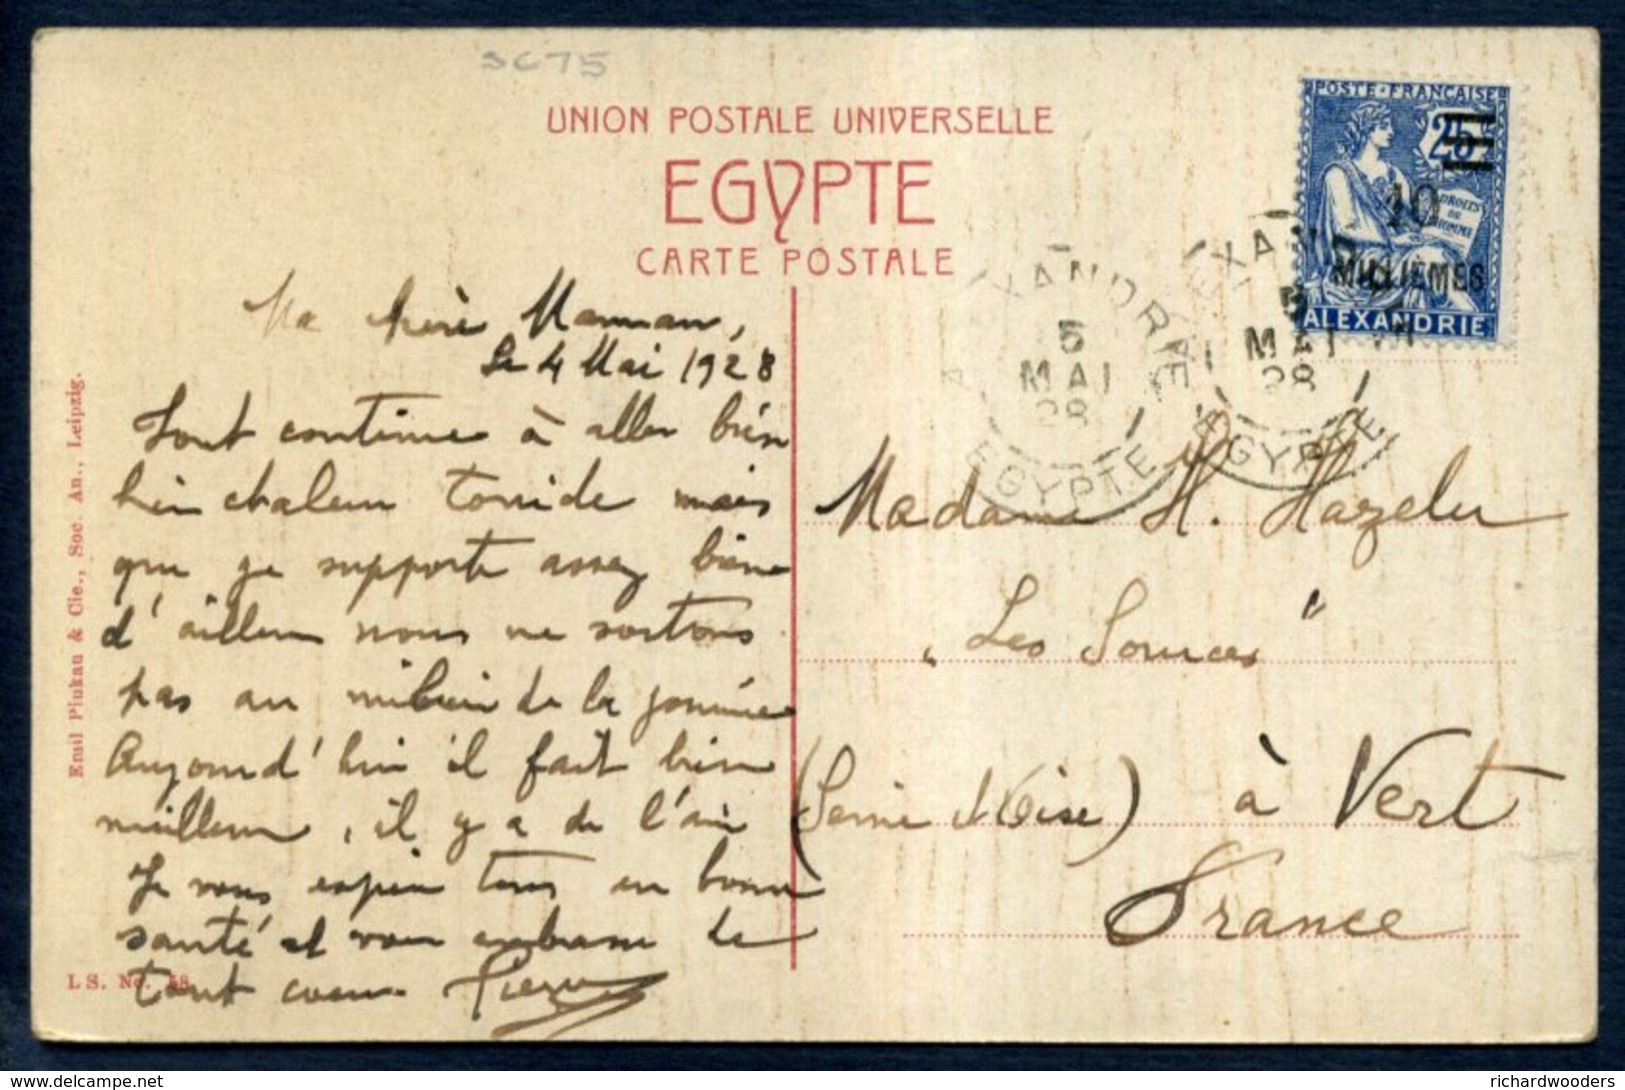 SG75
UNION POSTALE UNIVERSELLE
EGYPTE
CARTE POSTALE
POSTE FRANÇAISE
25
10
DROITS DE HOMME
MILLIEMES
ALEXANDRIE
XANDRIE
5
MAI
28
EGYPTE
XAN
5
MAI
28
EGYPTE
Emil Pinkau & Cie., Soc. An., Leipzig.
Ma chère Maman,
Le 4 Mai 1928
Tout continue à aller bien
chaleur torride mais
que je supporte assez bien
d'ailleurs nous ne sortons
pas au milieu de la journée
Aujourd'hui il fait bien
meilleur, il y a de l'air
Je vous espère tous en bonne
santé et vous embrasse de
tout coeur Pierre
L S. No. 58
Madame H. Hazeler
"Les Sources"
(Seine &Oise) à Vert
France
richardwooders